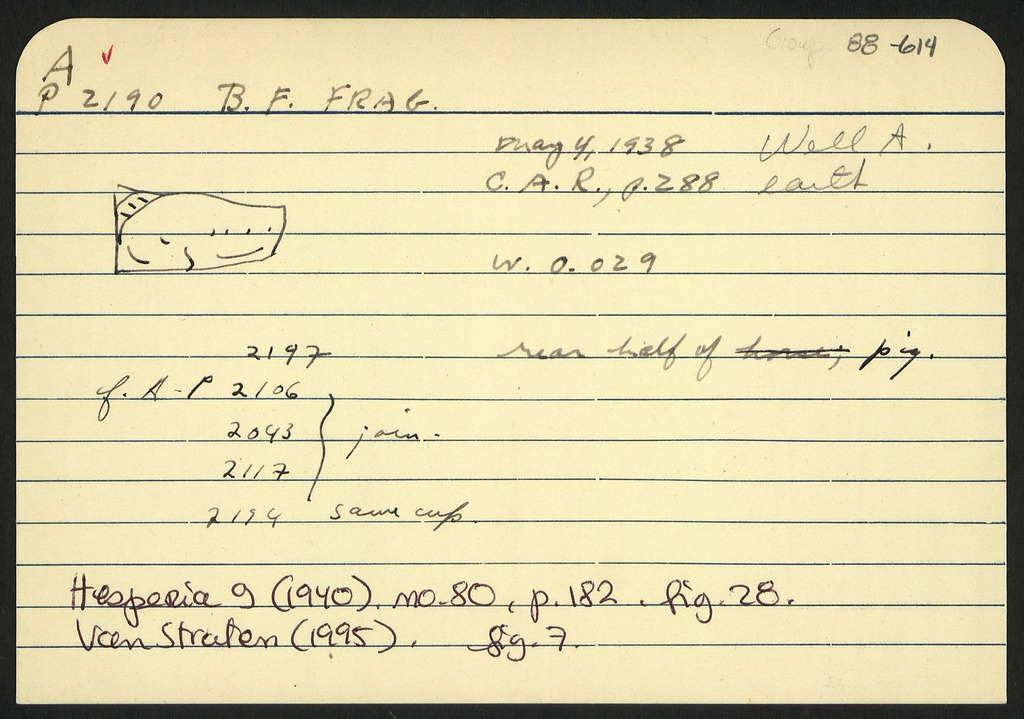 A ✓ Group 88-614
P 2190 B. F. FRAG.
May 4, 1938 Well A.
C. A. R., p. 288 earth
W. 0.029
2197 rear half of horse; pig.
cf. A-P 2106
2043 join.
2117
2194 same cup.
Hesperia 9 (1940). no. 80, p. 182. fig. 28.
Van Straten (1995). fig. 7.